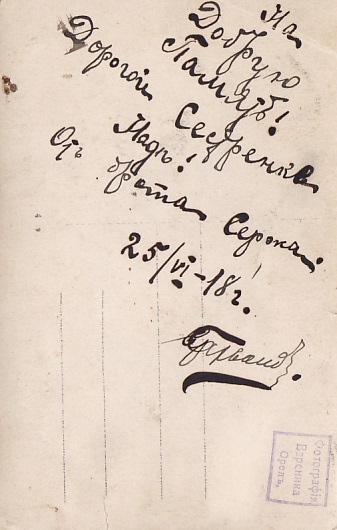 На
Добрую
Память!
Дорогой Сестренке
Наде!
Отъ брата Сережи
25/VI–18 г.
Фотографія
Вереника
Орелъ.